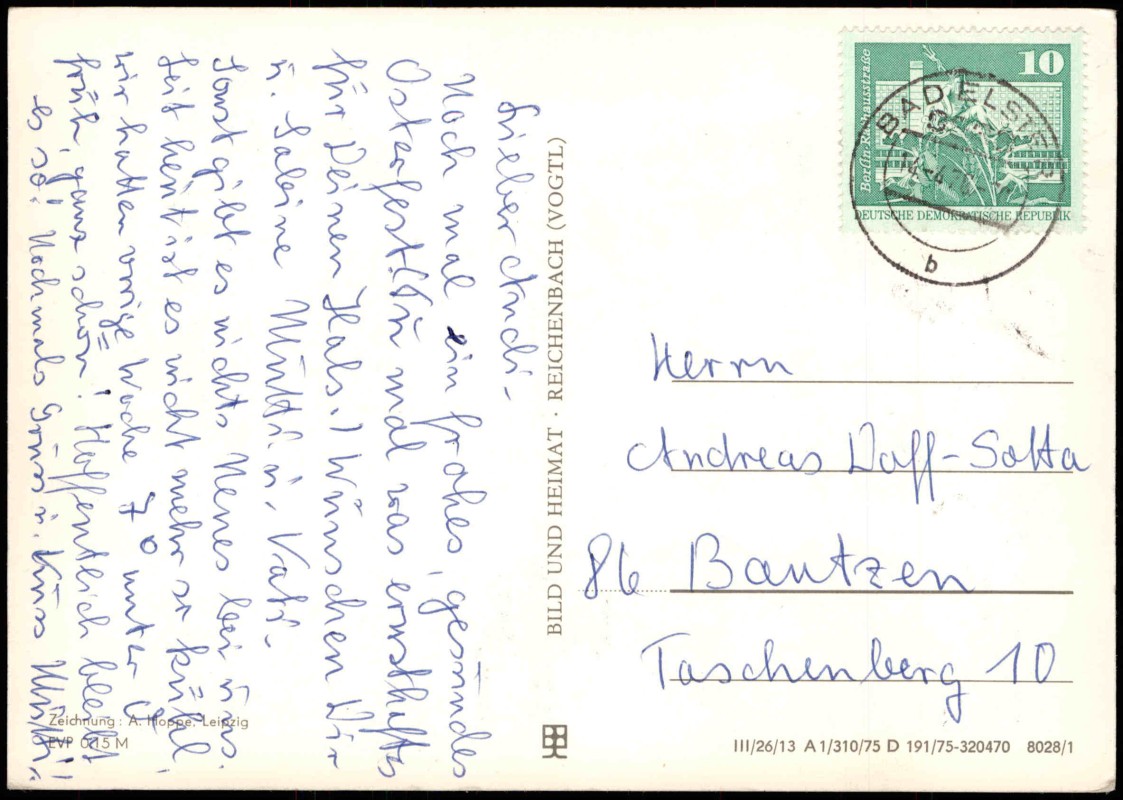 Lieber Andi -
Noch mal ein frohes, gesundes
Osterfest! (Für mal was ernsthaftes
für Deinen Hals.) Wünschen Dir
u. Sabine Mutti u. Kati -
Sonst gibt es nichts Neues bei uns.
Seit heut ist es nicht mehr so kühl,
wir hatten vorige Woche 7° unter 0
früh, ganz schön! Hoffentlich bleibt
es so! Nochmals Grüss u. Küss Mutti
Zeichnung: A. Hoppe, Leipzig
EVP 0,15 M
BILD UND HEIMAT · REICHENBACH (VOGTL)
10
Berlin Rathausstraße
DEUTSCHE DEMOKRATISCHE REPUBLIK
BAD ELSTER
b
Herrn
Andreas
86 Bautzen
Taschenberg 10
III/26/13 A 1/310/75 D 191/75-320470 8028/1